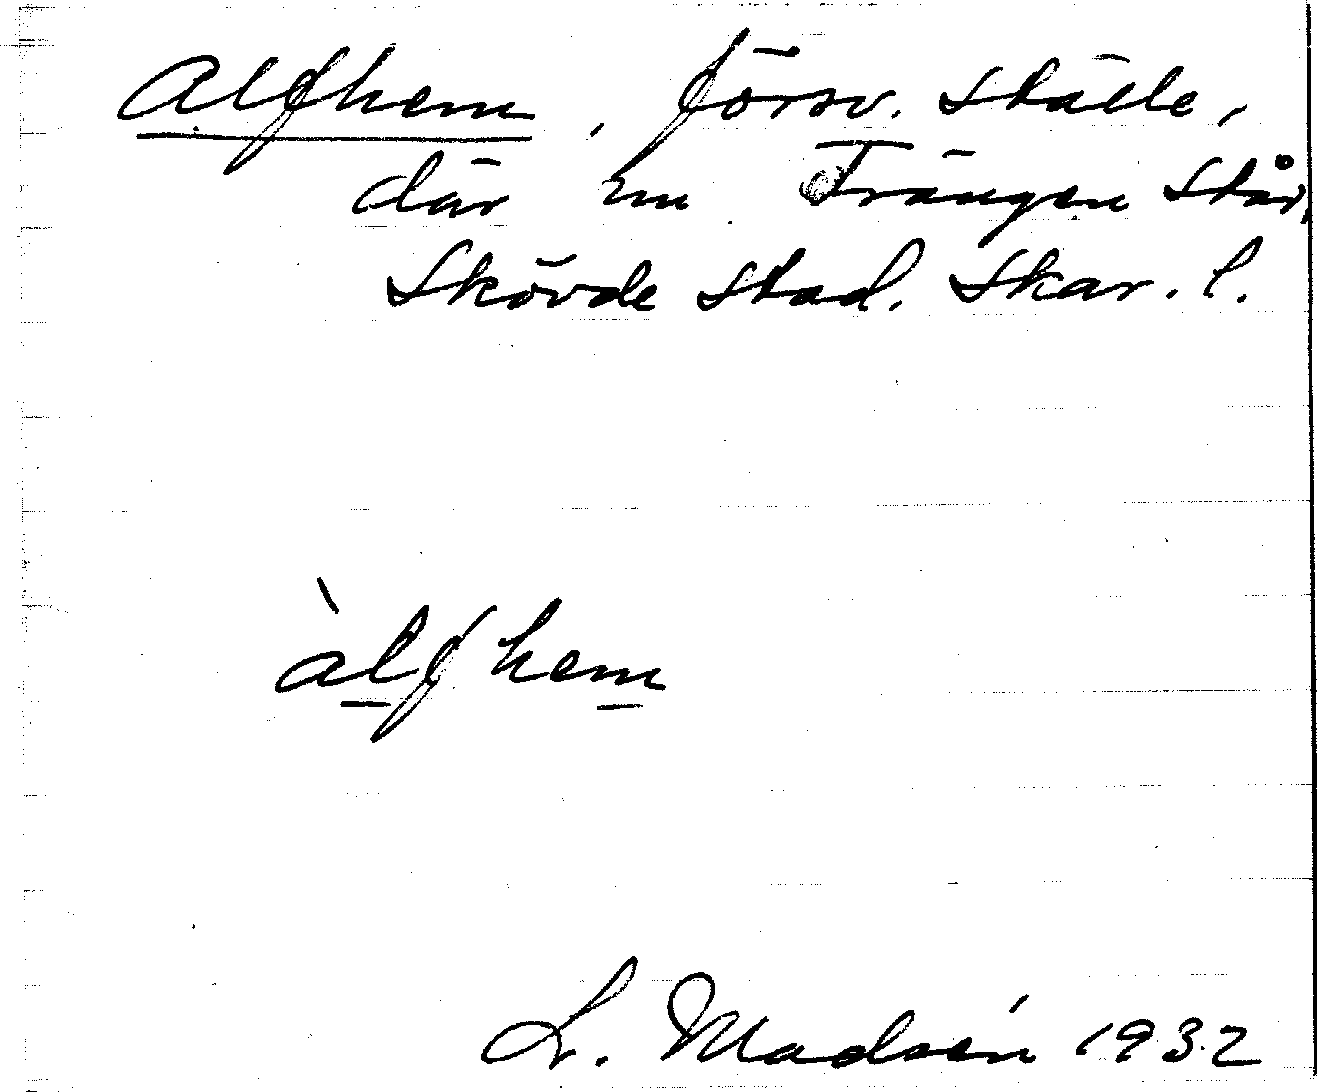 Alfhem, försv. ställe,
där nu Trängen står,
Skövde stad. Skar. l.
àlfhem
L. Madsén 1932